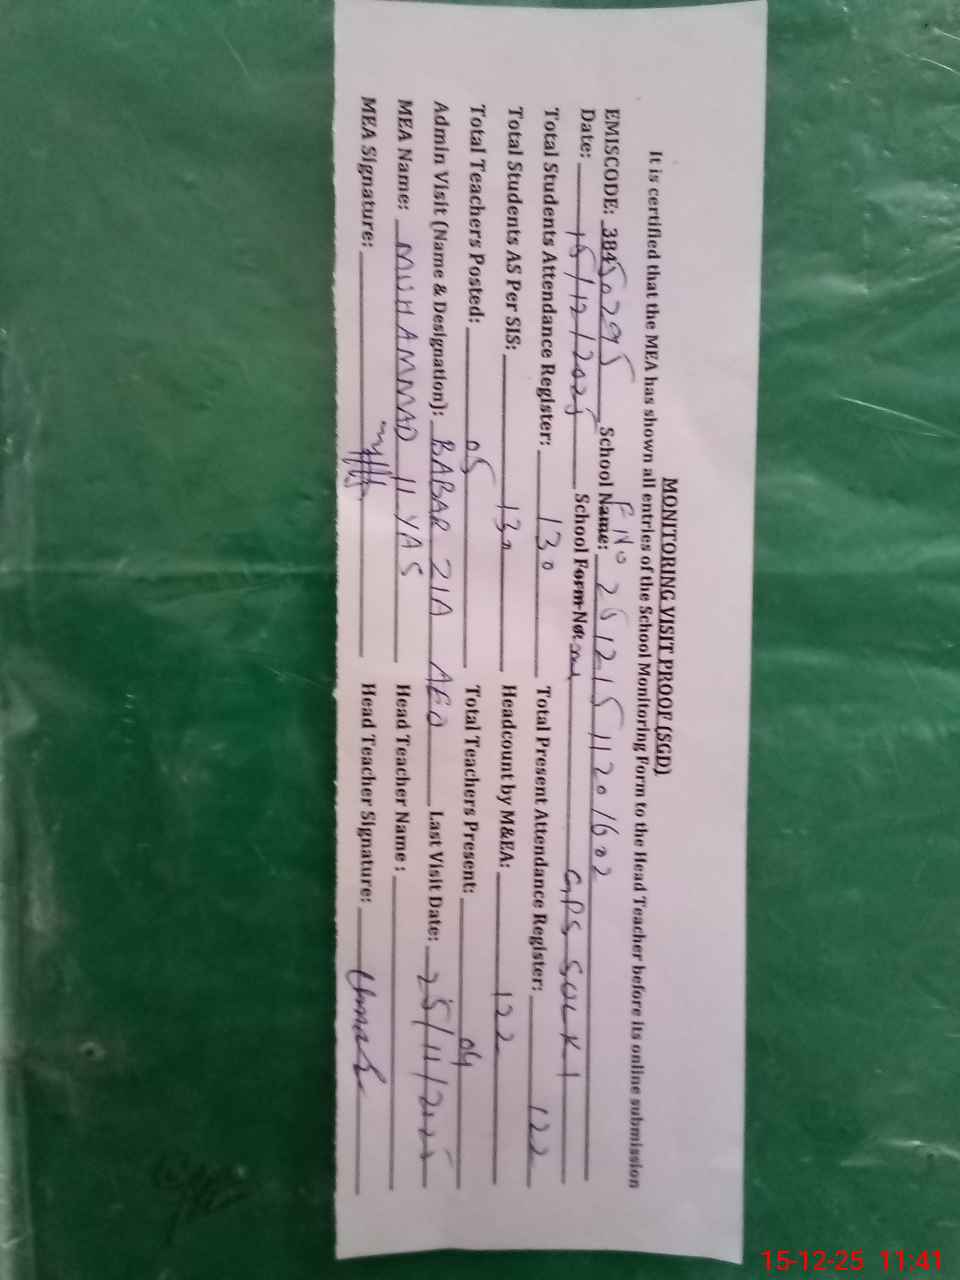 MONITORING VISIT PROOF (SGD)
It is certified that the MEA has shown all entries of the School Monitoring Form to the Head Teacher before its online submission
F No 25121511201602
EMISCODE: 38450295 School Name:
Date: 15/12/2025 School Form No: GPS SOLKI
Total Students Attendance Register: 130 Total Present Attendance Register: 122
Total Students AS Per SIS: 130 Headcount by M&EA: 122
Total Teachers Posted: 05 Total Teachers Present: 04
Admin Visit (Name & Designation): BABAR ZIA AEO Last Visit Date: 25/11/2025
MEA Name: MUHAMMAD ILYAS Head Teacher Name :
MEA Signature: Head Teacher Signature:
15-12-25 11:41